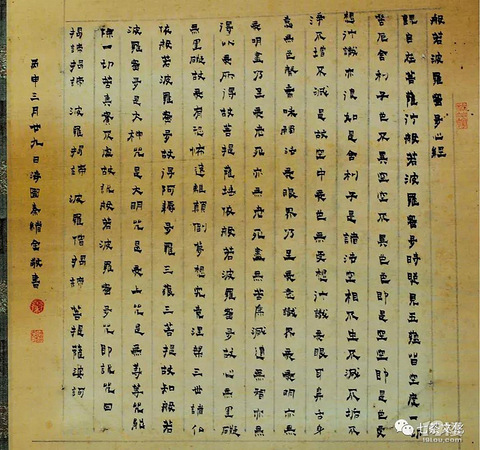 般若波羅蜜多心經
觀自在菩薩行般若波羅蜜多時照見五蘊皆空度一切
苦厄舍利子色不異空空不異色色即是空空即是色受
想行識亦復如是舍利子是諸法空相不生不滅不垢不
淨不增不減是故空中無色無受想行識無眼耳鼻舌身
意無色聲香味觸法無眼界乃至無意識界無無明亦無
無明盡乃至無老死亦無老死盡無苦集滅道無智亦無
得以無所得故菩提薩埵依般若波羅蜜多故心無罣礙
無罣礙故無有恐怖遠離顛倒夢想究竟涅槃三世諸仏
依般若波羅蜜多故得阿耨多羅三藐三菩提故知般若
波羅蜜多是大神咒是大明咒是無上咒是無等等咒能
除一切苦真實不虛故說般若波羅蜜多咒即說咒曰
揭諦揭諦 波羅揭諦 波羅僧揭諦 菩提薩婆訶
丙申三月廿九日海國秦敬書